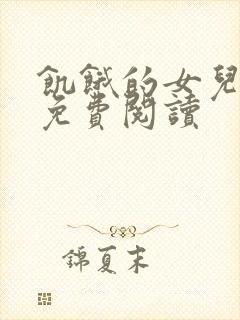 飢餓的女兒
免費閱讀
錦夏末